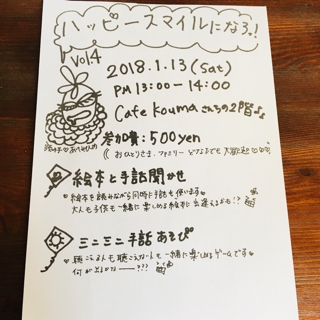 ハッピースマイルになろ!
Vol4
2018.1.13(sat)
PM 13:00-14:00
Cafe Koumaさんちの2階♪♪
参加費:500yen
(おひとりさま、ファミリー どなたでも 大歓迎♡
絵本と手話聞かせ
絵本を読みながら同時に手話も使います。
大人も子供も一緒に楽しめる絵本に出逢えるかも!?
ミニミニ手話あそび
聴こえる人も聴こえない人も一緒に楽しめるゲームです♡
何が出るかなー???